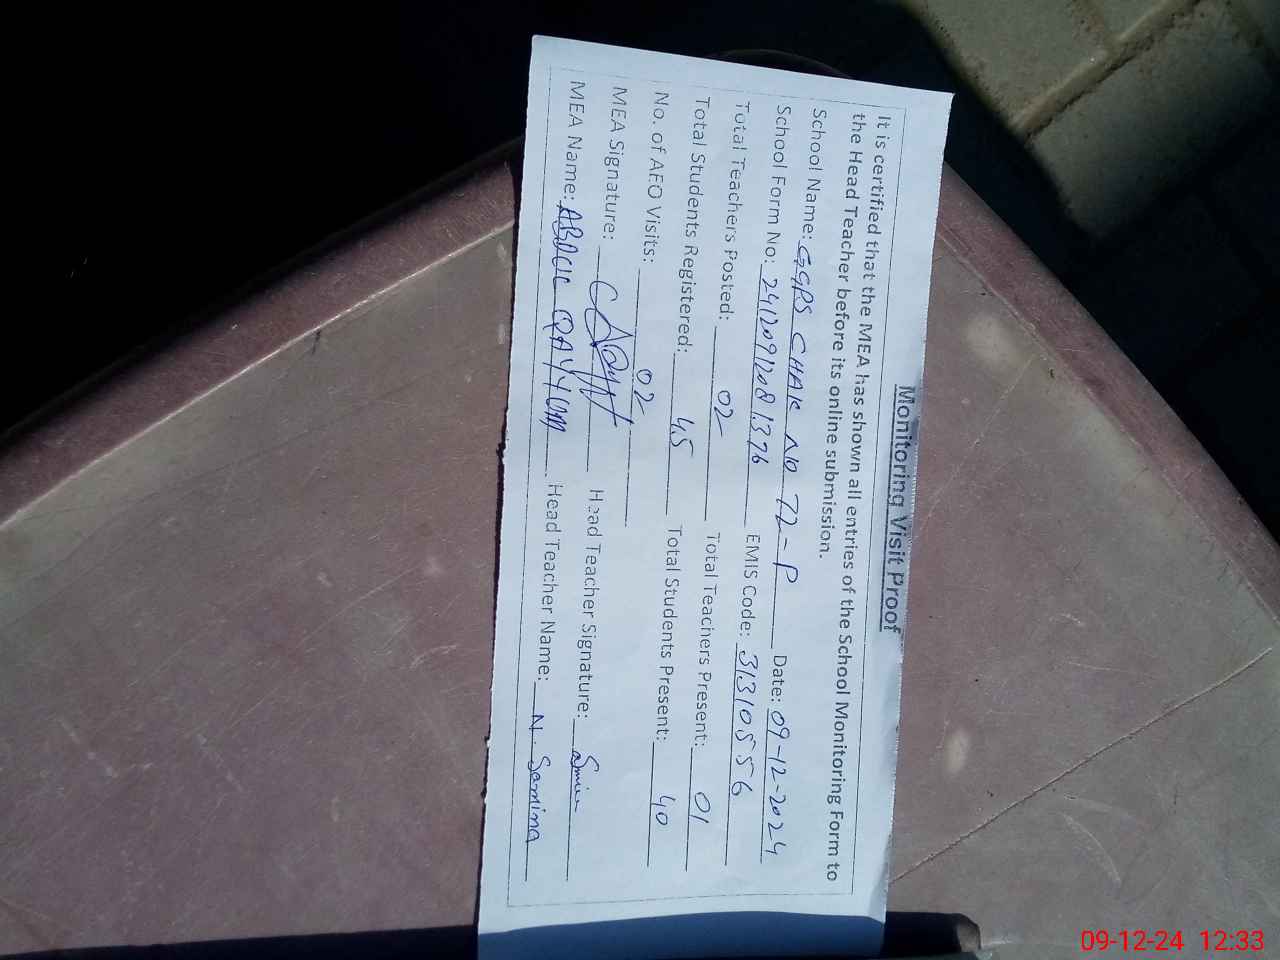 Monitoring Visit Proof
It is certified that the MEA has shown all entries of the School Monitoring Form to
the Head Teacher before its online submission.
School Name: GGPS CHAK NO 72-P Date: 09-12-2024
School Form No: 24120912081376 EMIS Code: 31310556
Total Teachers Posted: 02 Total Teachers Present: 01
Total Students Registered: 45 Total Students Present: 40
No. of AEO Visits: 02
MEA Signature: Head Teacher Signature:
MEA Name: ABDUL QAYYUM Head Teacher Name: N. Samina
09-12-24 12:33